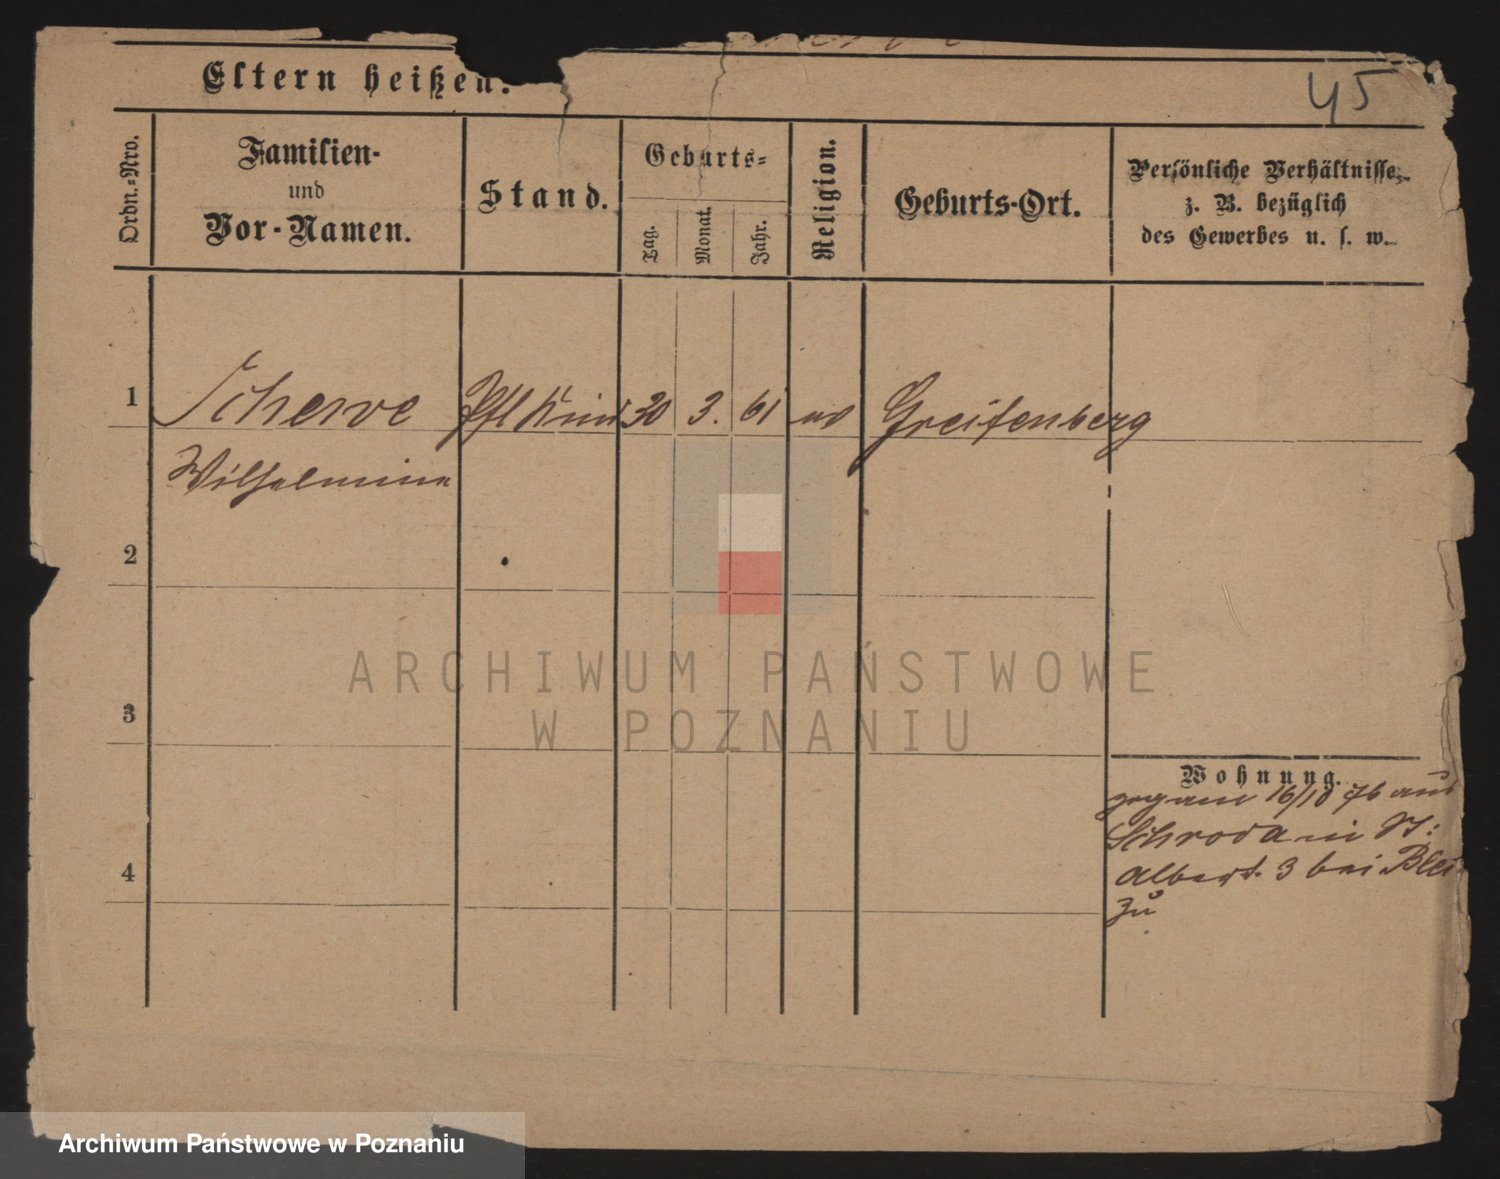 Eltern heißen.
45
Ordn.-Nro.
Familien-
und
Vor-Namen.
Stand.
Geburts-
Tag.
Monat.
Jahr.
Religion.
Geburts-Ort.
Persönliche Verhältnisse,
z. B. bezüglich
des Gewerbes u. s. w.
1 Scherve Pfl Kind 30 3. 61 ev Greifenberg
Wilhelmine
2
3
4
Wohnung.
16/10 76 aus
Schroda in St:
Albert. 3 bei
zu
ARCHIWUM PAŃSTWOWE
W POZNANIU
Archiwum Państwowe w Poznaniu